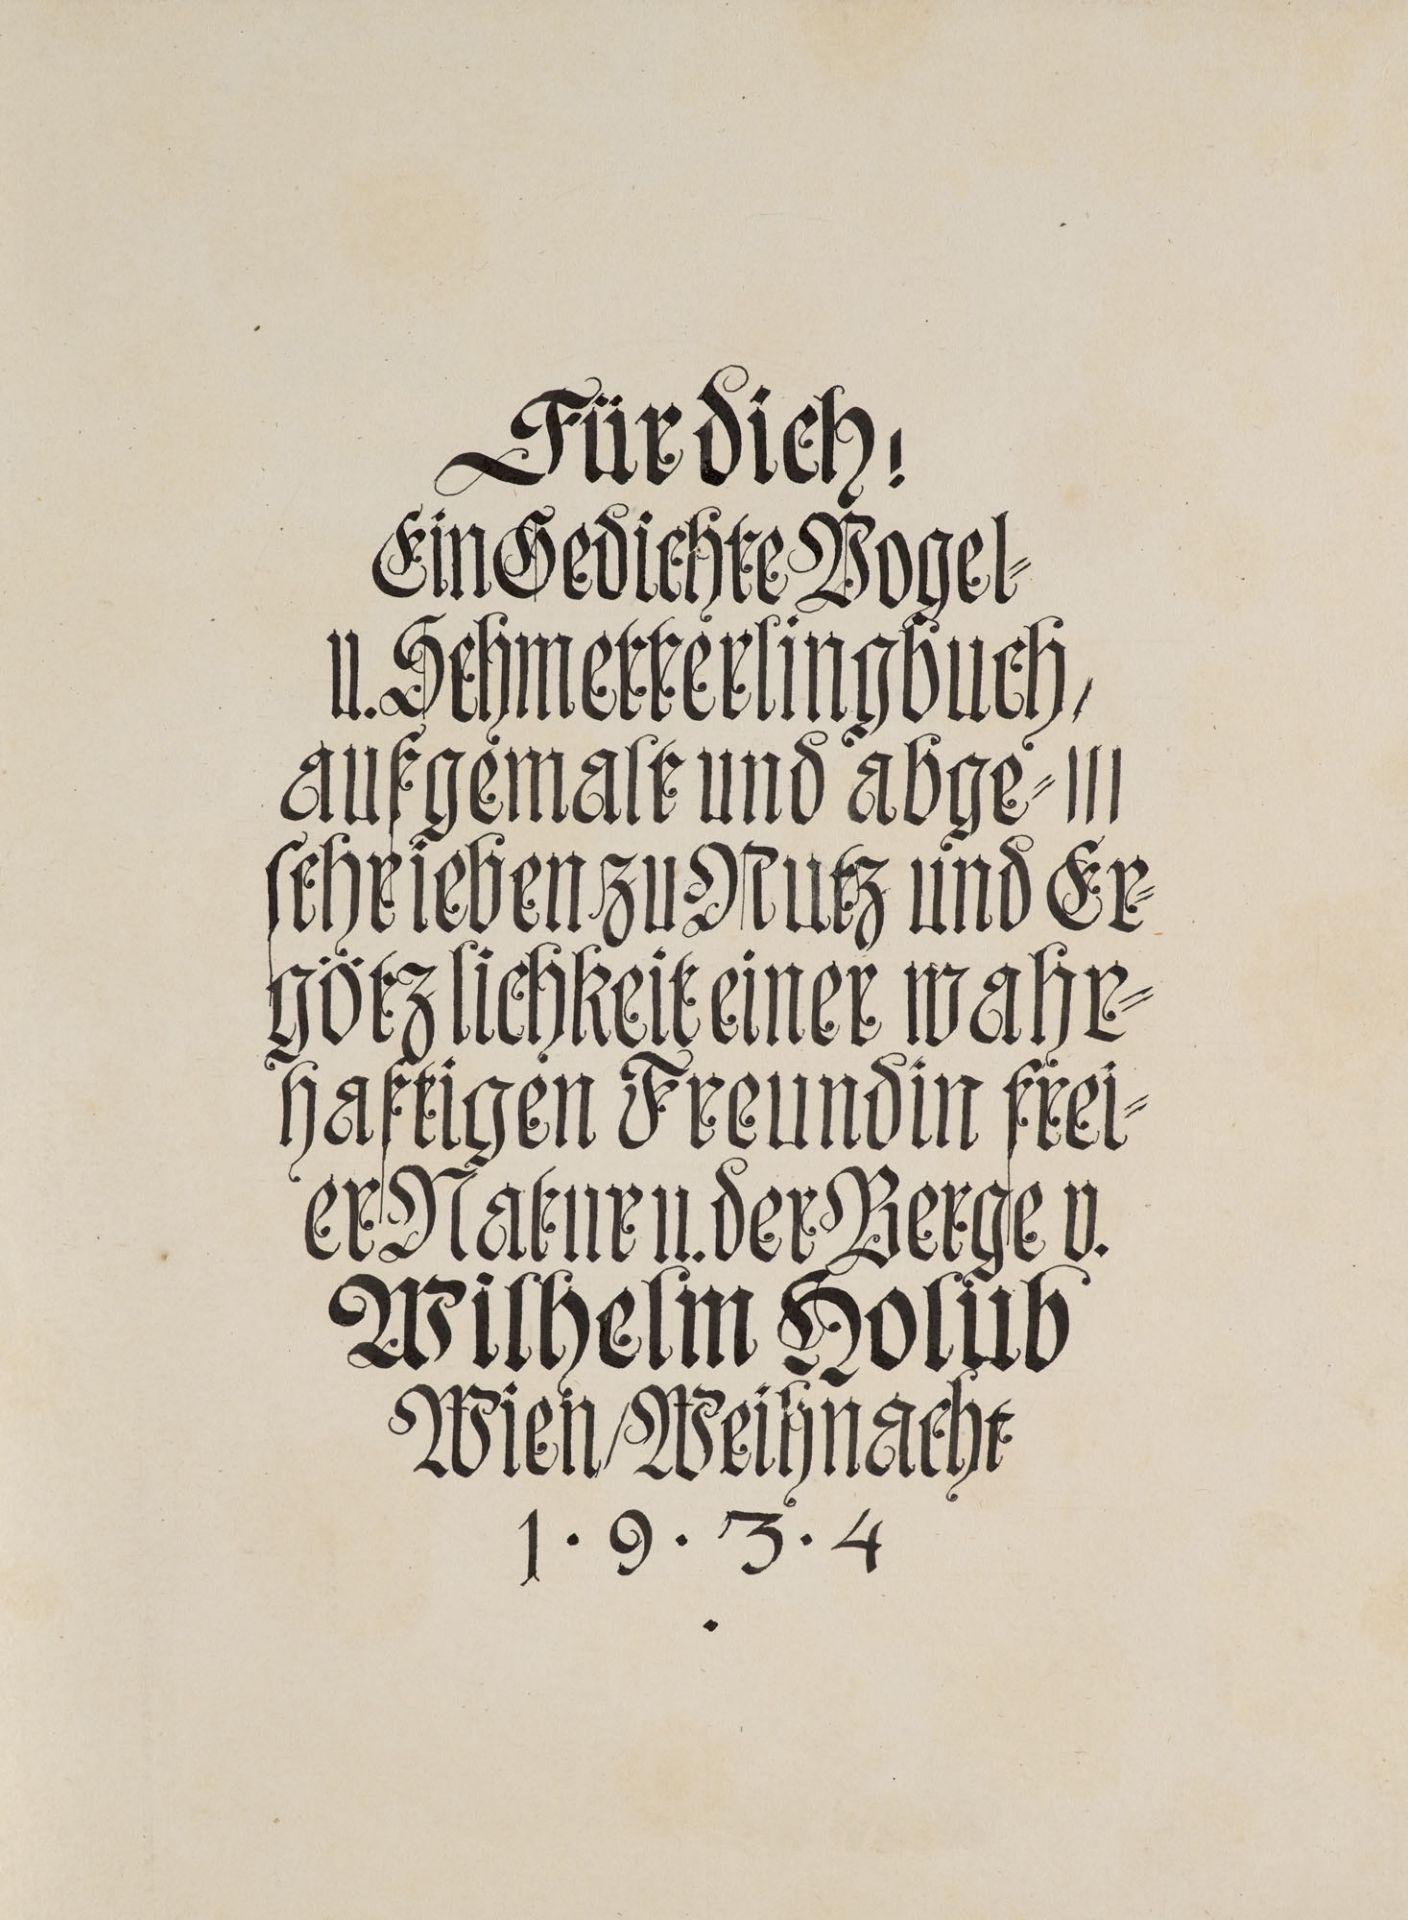 Für dich!
Ein Gedichte Vogel-
u. Schmetterlingbuch,
aufgemalt und abge-
schrieben zu Nutz und Er-
götzlichkeit einer wahr-
haftigen Freundin frei-
er Natur u. der Berge v.
Wilhelm Holub
Wien/Weihnacht
1·9·3·4